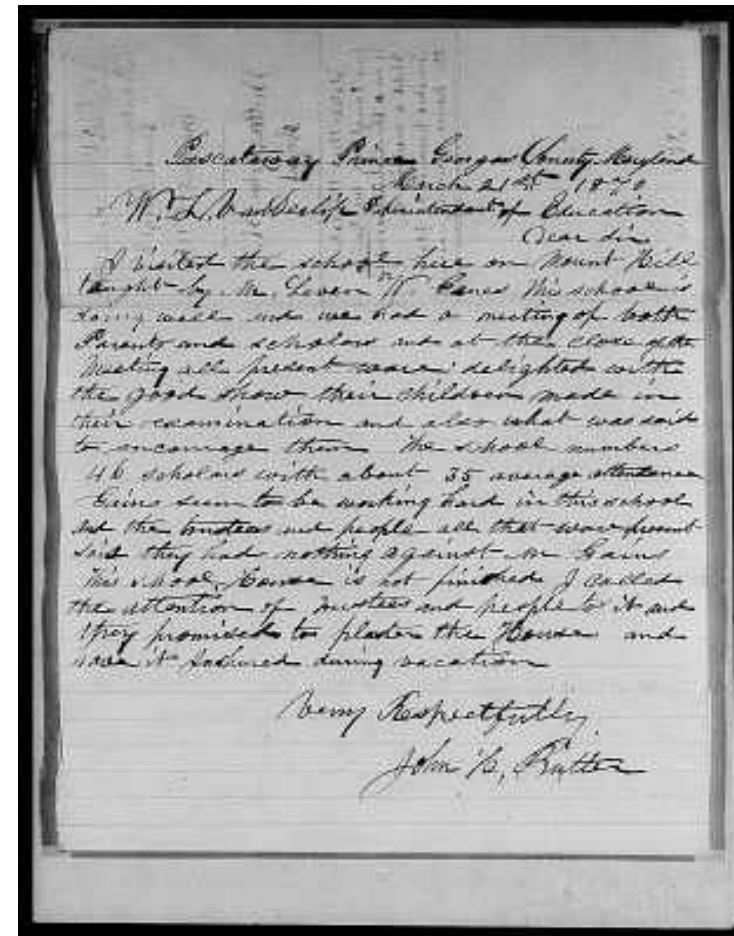 Piscataway Prince Georges County Maryland
March 21st 1870
W. L. VanDerlip Superintendent of Education
Dear Sir
I visited the school here on Mount Hill
taught by Mr. Leven W. This school is
doing well and we had a meeting of both
Parents and scholars and at the close of the
Meeting all present ware delighted with
the good show their children made in
their examination and also what was said
to encourage them The school numbers
46 scholars with about 35 average attendance
Gains seem to be working hard in this school
and the trustees and people all that ware present
said they had nothing against Mr Gains
This School House is not finished I called
the attention of trustees and people to it and
they promised to plaster the House and
have it during vacation
Very Respectfully
John H. Butler